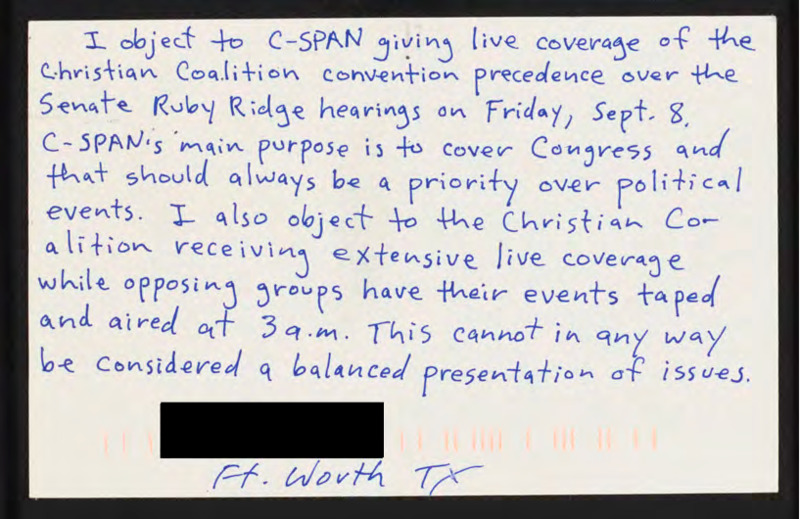 I object to C-SPAN giving live coverage of the
Christian Coalition convention precedence over the
Senate Ruby Ridge hearings on Friday, Sept. 8.
C-SPAN's main purpose is to cover Congress and
that should always be a priority over political
events. I also object to the Christian Co-
alition receiving extensive live coverage
while opposing groups have their events taped
and aired at 3 a.m. This cannot in any way
be considered a balanced presentation of issues.
Ft. Worth TX